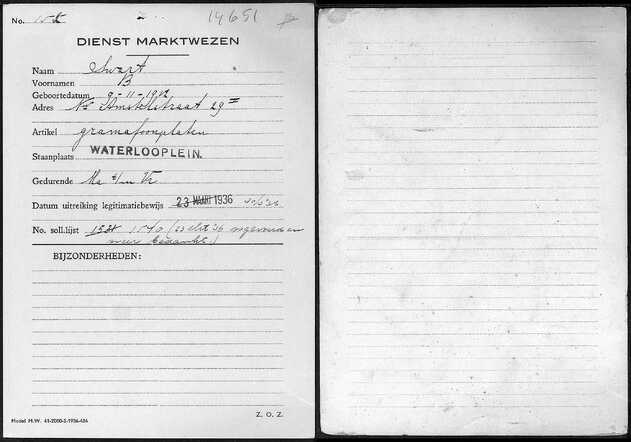 No. 14651
DIENST MARKTWEZEN
Naam Swart
Voornamen B
Geboortedatum 9-11-1912
Adres Nwe Amstelstraat 29 II
Artikel gramafoonplaten
Staanplaats WATERLOOPLEIN.
Gedurende Ma t/m Vr
Datum uitreiking legitimatiebewijs 23 MAART 1936
No. soll.lijst 1540
BIJZONDERHEDEN:
Z. O. Z.
Model M.W. 41-2000-2-1936-426